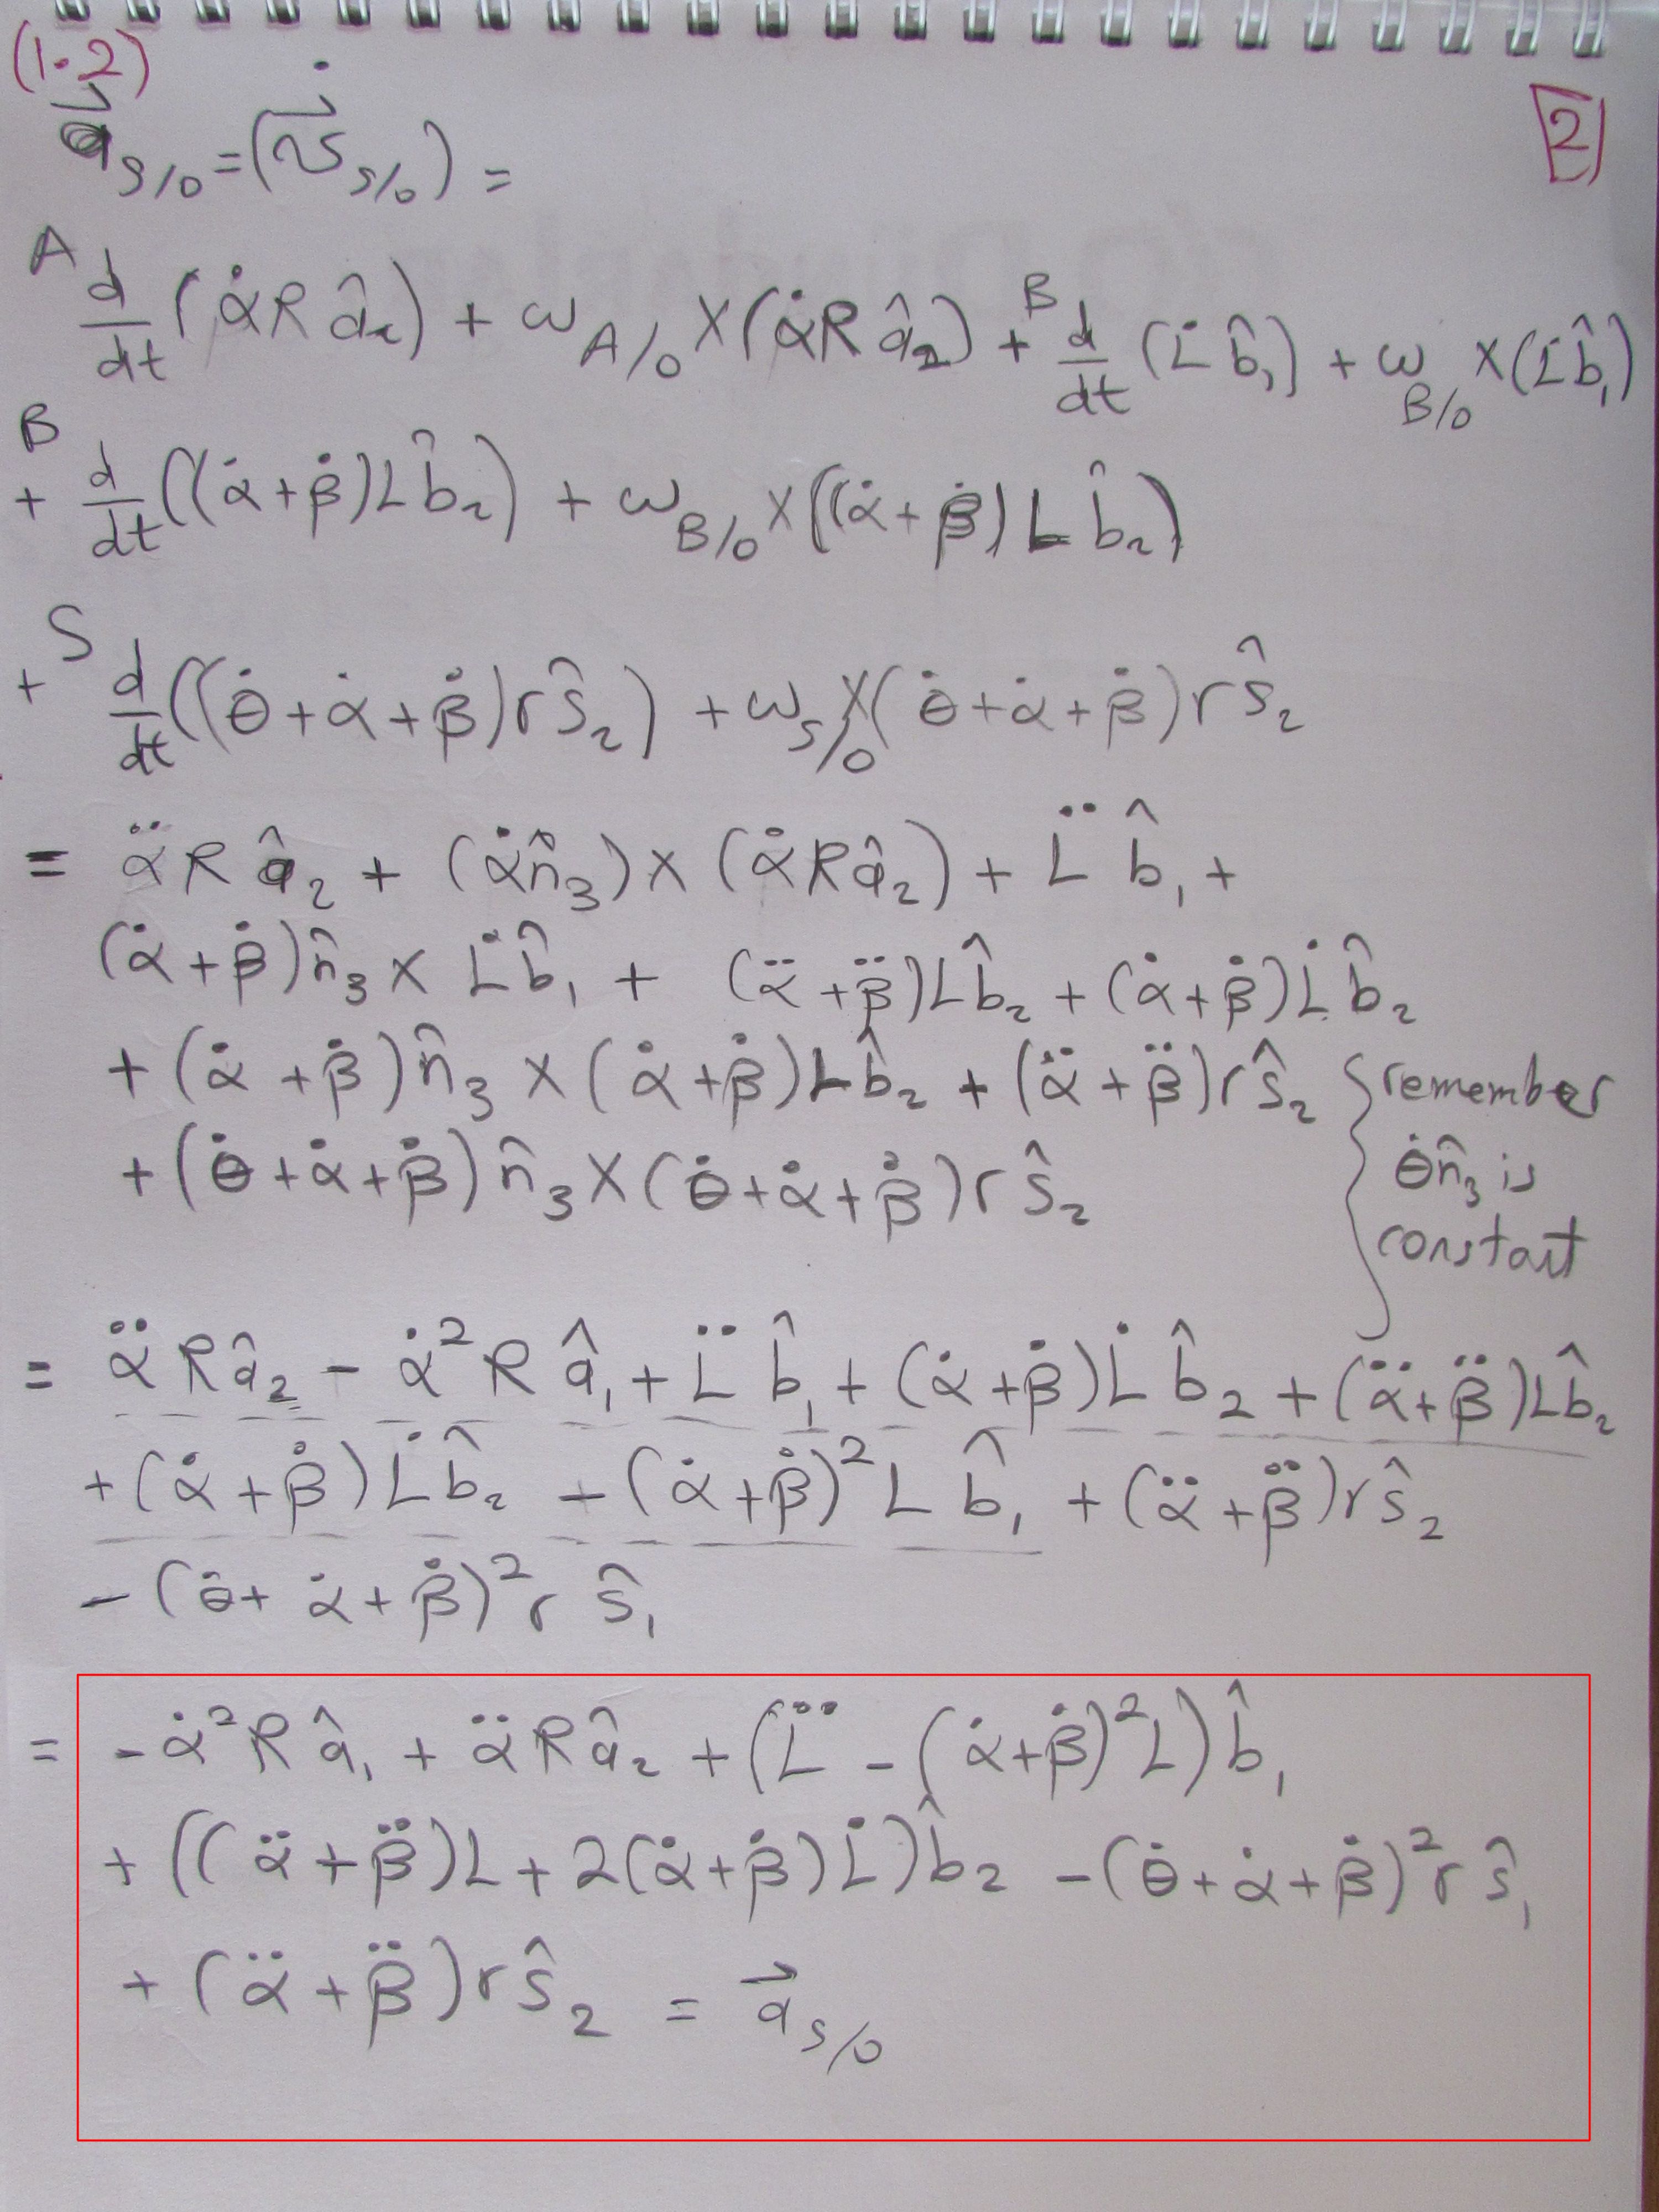 (1.2)
2
a⃗_{S/O} = (v⃗̇_{S/O}) =
^A d/dt (α̇R â₂) + ω_{A/O} × (α̇R â₂) + ^B d/dt (L̇ b̂₁) + ω_{B/O} × (L̇ b̂₁)
+ ^B d/dt ((α̇+β̇)L b̂₂) + ω_{B/O} × ((α̇+β̇) L b̂₂)
+ ^S d/dt ((θ̇+α̇+β̇)r ŝ₂) + ω_{S/O} × (θ̇+α̇+β̇)r ŝ₂
= α̈ R â₂ + (α̇ n̂₃) × (α̇R â₂) + L̈ b̂₁ +
(α̇+β̇) n̂₃ × L̇ b̂₁ + (α̈+β̈)L b̂₂ + (α̇+β̇)L̇ b̂₂
+ (α̇+β̇) n̂₃ × (α̇+β̇)L b̂₂ + (α̈+β̈)r ŝ₂
+ (θ̇+α̇+β̇) n̂₃ × (θ̇+α̇+β̇)r ŝ₂
remember
θ̇ n̂₃ is
constant
= α̈ R â₂ - α̇² R â₁ + L̈ b̂₁ + (α̇+β̇)L̇ b̂₂ + (α̈+β̈)L b̂₂
+ (α̇+β̇)L̇ b̂₂ - (α̇+β̇)² L b̂₁ + (α̈+β̈)r ŝ₂
- (θ̇+α̇+β̇)² r ŝ₁
= - α̇² R â₁ + α̈ R â₂ + (L̈ - (α̇+β̇)² L) b̂₁
+ ((α̈+β̈)L + 2(α̇+β̇)L̇) b̂₂ - (θ̇+α̇+β̇)² r ŝ₁
+ (α̈+β̈)r ŝ₂ = a⃗_{S/O}